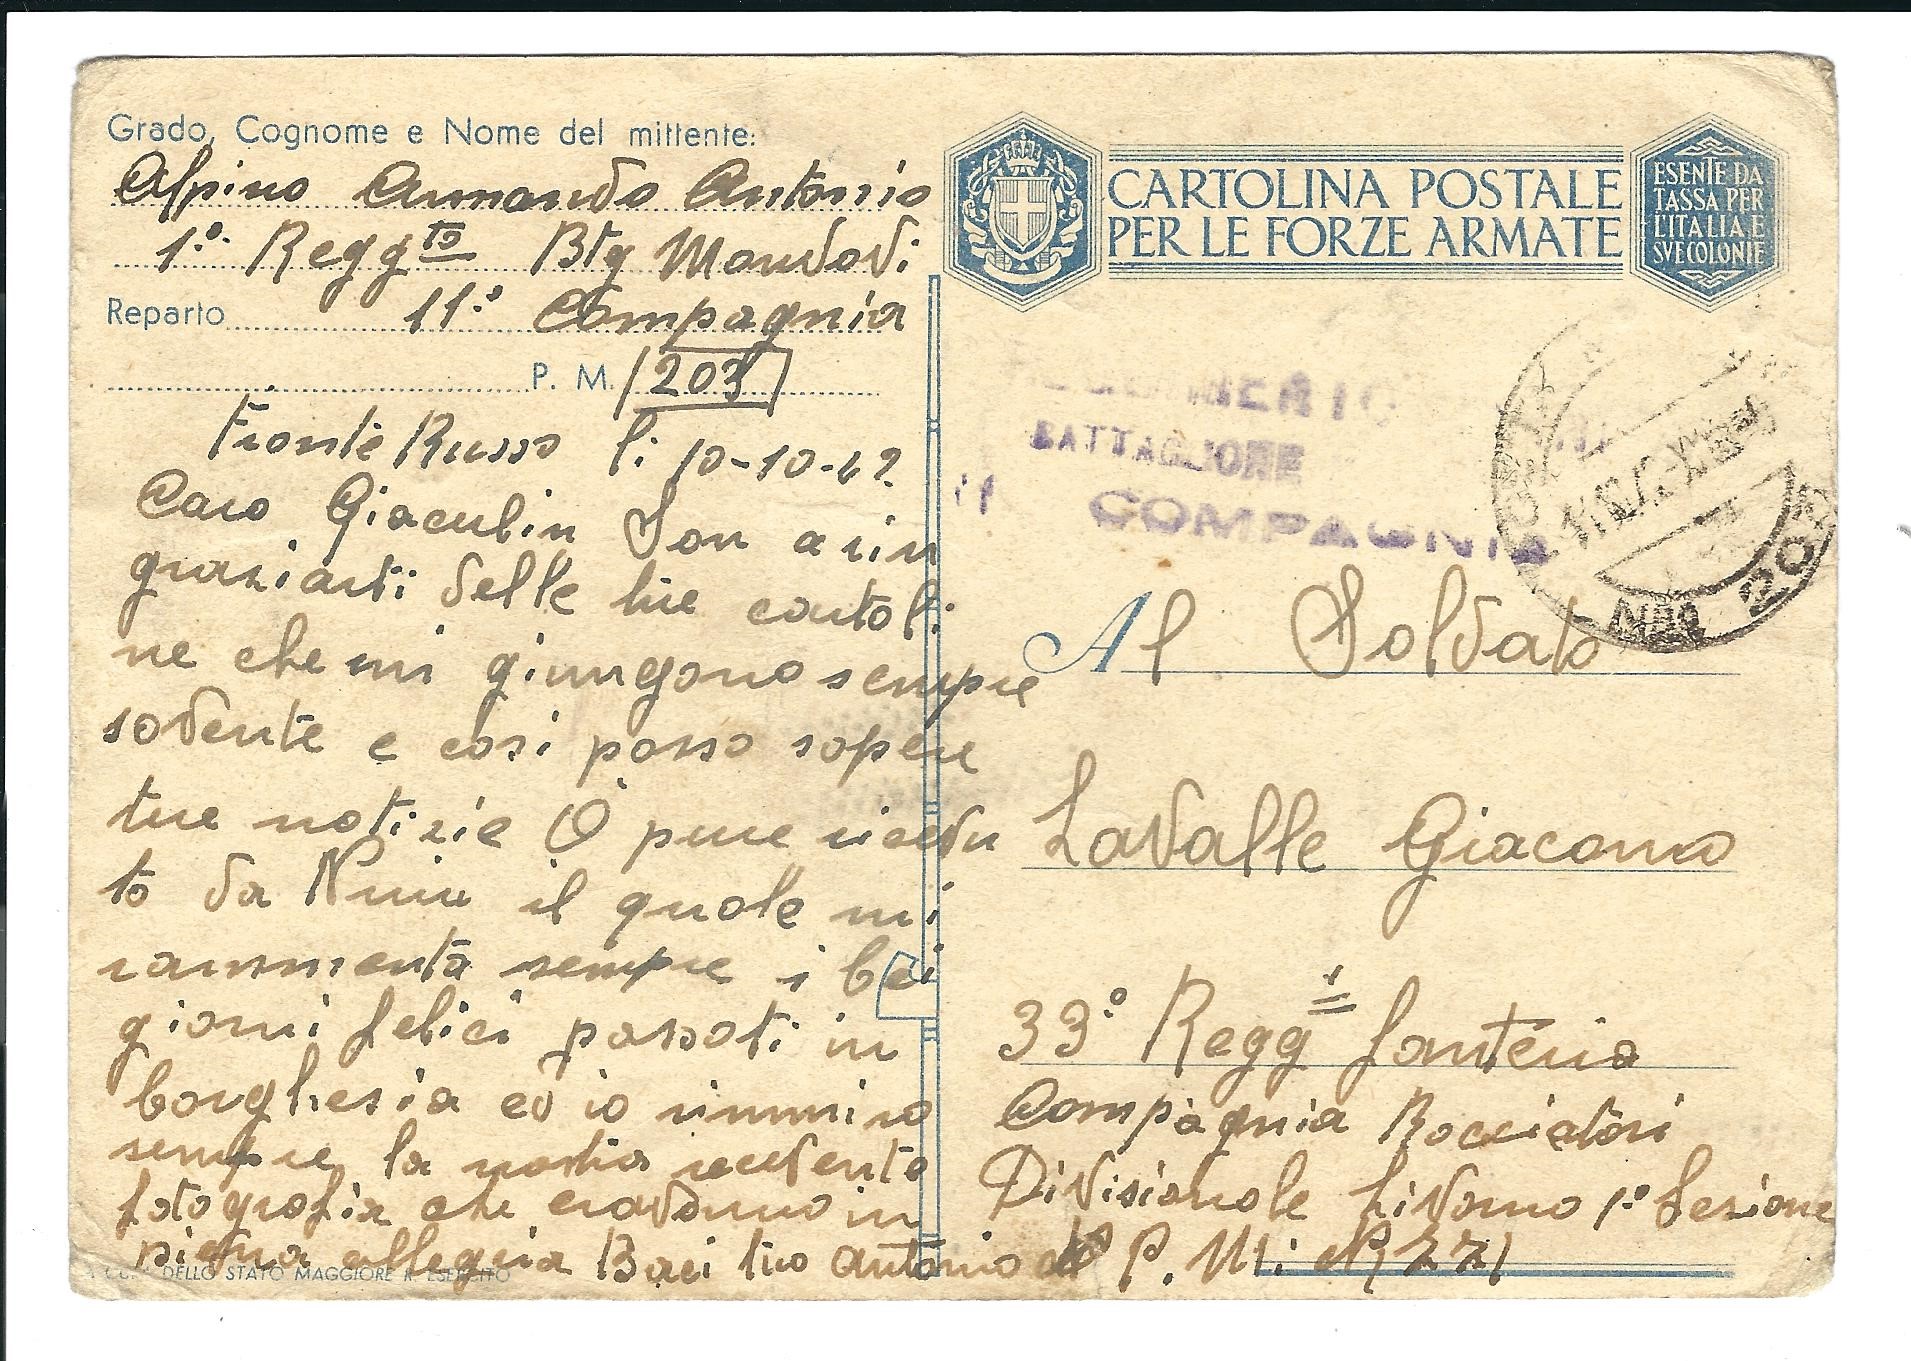 Grado, Cognome e Nome del mittente:
Alpino Armando Antonio
1° Regg.to Btg Mondovi
Reparto 11° Compagnia
P. M. 203
Fronte Russo li 10-10-42
Caro Giaculin Son a rin
graziarti delle tue cartoli
ne che mi giungono sempre
sovente e cosi posso sapere
tue notizie O pure ricevu
to da Nini il quale mi
rammenta sempre i bei
giorni felici passati in
borghesia ed io rimmiro
sempre la nostra
fotografia che eravamo in
piena allegria Baci tuo Antonio
A CURA DELLO STATO MAGGIORE R. ESERCITO
CARTOLINA POSTALE
PER LE FORZE ARMATE
ESENTE DA
TASSA PER
L'ITALIA E
SVE COLONIE
BATTAGLIONE
11 COMPAGNIA
203
Al Soldato
Lavalle Giacomo
33° Regg Fanteria
Compagnia Rocciatori
Divisionale Livorno 1° Sezione
P. M. N 271